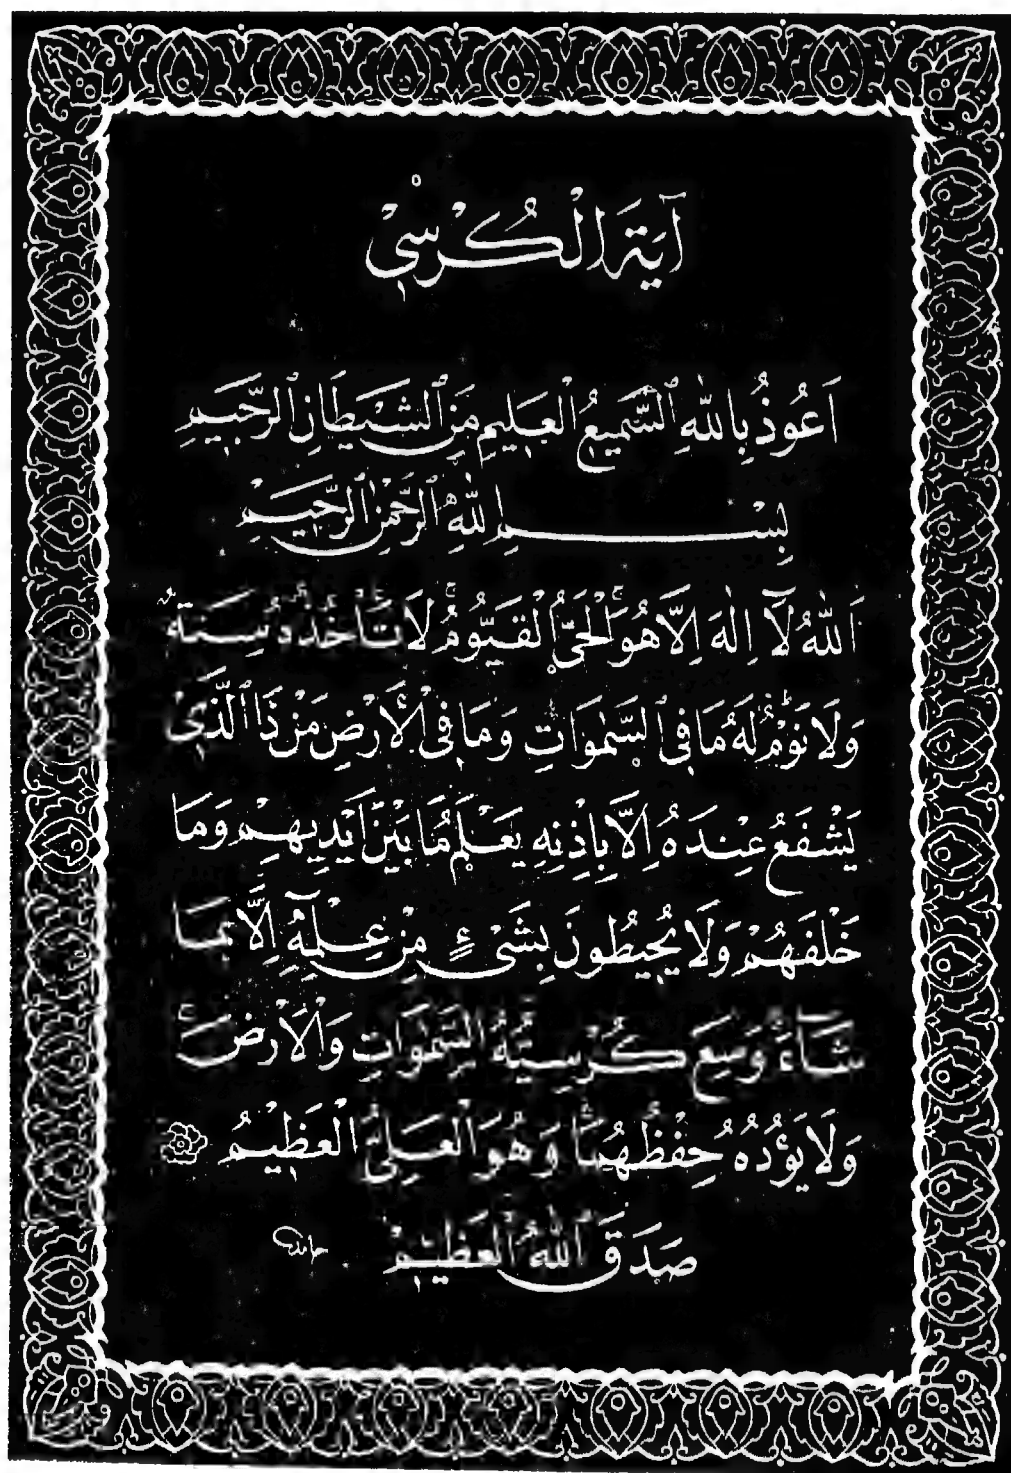 آيَةَ الْكُرْسِيْ
اَعُوذُ بِاللّٰهِ السَّمِيعِ الْعَلِيمِ مِنَ الشَّيْطَانِ الرَّجِيمِ
بِسْمِ اللّٰهِ الرَّحْمٰنِ الرَّحِيمِ
اَللّٰهُ لَآ اِلٰهَ اِلَّا هُوَ الْحَيُّ الْقَيُّومُ لَا تَأْخُذُهُ سِنَةٌ
وَلَا نَوْمٌ لَهُ مَا فِي السَّمٰوَاتِ وَمَا فِي الْأَرْضِ مَنْ ذَا الَّذِي
يَشْفَعُ عِنْدَهُ اِلَّا بِاِذْنِهِ يَعْلَمُ مَا بَيْنَ اَيْدِيهِمْ وَمَا
خَلْفَهُمْ وَلَا يُحِيطُونَ بِشَيْءٍ مِنْ عِلْمِهِٓ اِلَّا بِمَا
شَآءَ وَسِعَ كُرْسِيُّهُ السَّمٰوَاتِ وَالْاَرْضَ
وَلَا يَؤُدُهُ حِفْظُهُمَا وَهُوَ الْعَلِيُّ الْعَظِيْمُ
صَدَقَ اللّٰهُ الْعَظِيْمْ